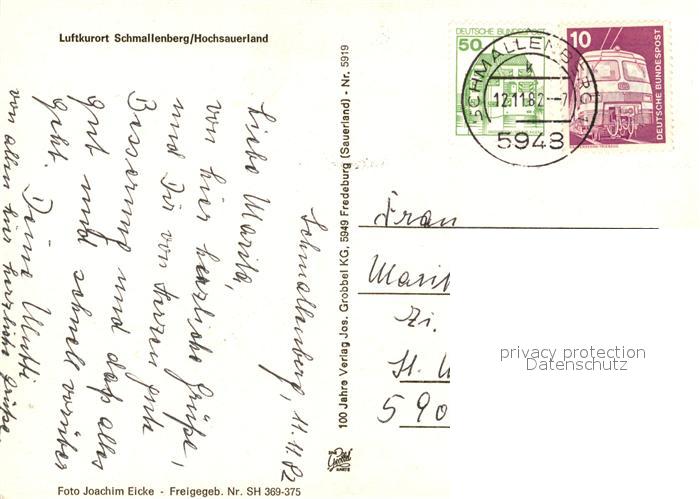 Luftkurort Schmallenberg/Hochsauerland
Schmallenberg, 11.11.82
Liebe Marita,
von hier herzliche Grüße,
und Dir von Herzen gute
Besserung und daß alles
gut und schnell vorüber
geht. Deine Mutti
von allen hier herzliche Grüße.
Foto Joachim Eicke - Freigegeb. Nr. SH 369-375
100 Jahre Verlag Jos. Grobbel KG, 5949 Fredeburg (Sauerland) - Nr. 5919
DEUTSCHE BUNDESPOST
50
10
DEUTSCHE BUNDESPOST
SCHMALLENBERG 1
k
12.11.82--7
5948
Frau
Marit
Zi.
St.
590
privacy protection
Datenschutz